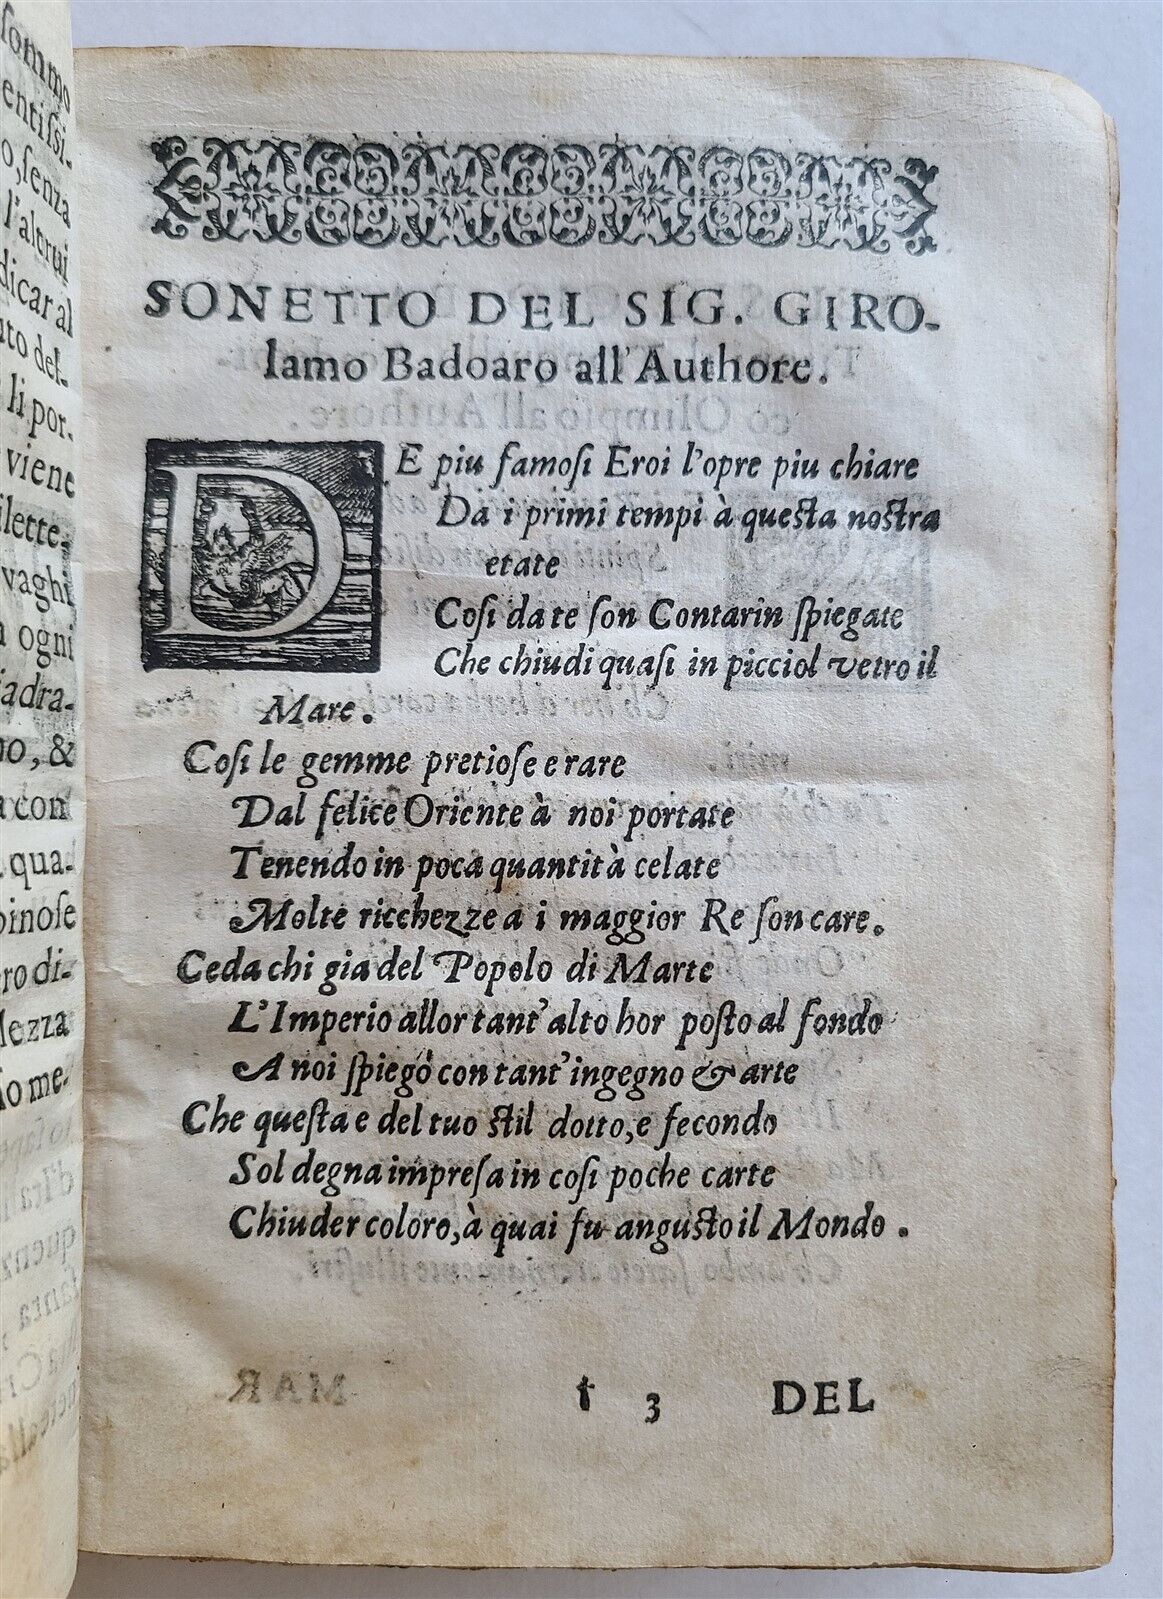 SONETTO DEL SIG. GIRO-
lamo Badoaro all'Authore.
DE piu famoſi Eroi l'opre piu chiare
Da i primi tempi à queſta noſtra
etate
Coſi da te ſon Contarin ſpiegate
Che chiudi quaſi in picciol vetro il
Mare.
Coſi le gemme pretioſe e rare
Dal felice Oriente à noi portate
Tenendo in poca quantità celate
Molte ricchezze a i maggior Re ſon care.
Ceda chi gia del Popolo di Marte
L'Imperio allor tant'alto hor poſto al fondo
A noi ſpiegò con tant'ingegno & arte
Che queſta e del tuo ſtil dotto, e fecondo
Sol degna impreſa in coſi poche carte
Chiuder coloro, à quai fu anguſto il Mondo.
† 3 DEL
ſommo
entiſſi-
o, ſenza
l'altrui
dicar al
uto del-
li por-
viene
ilette-
vaghi
ogni
iadra-
no, &
a con
qua-
pinoſe
ro di-
lezza
ſo me-